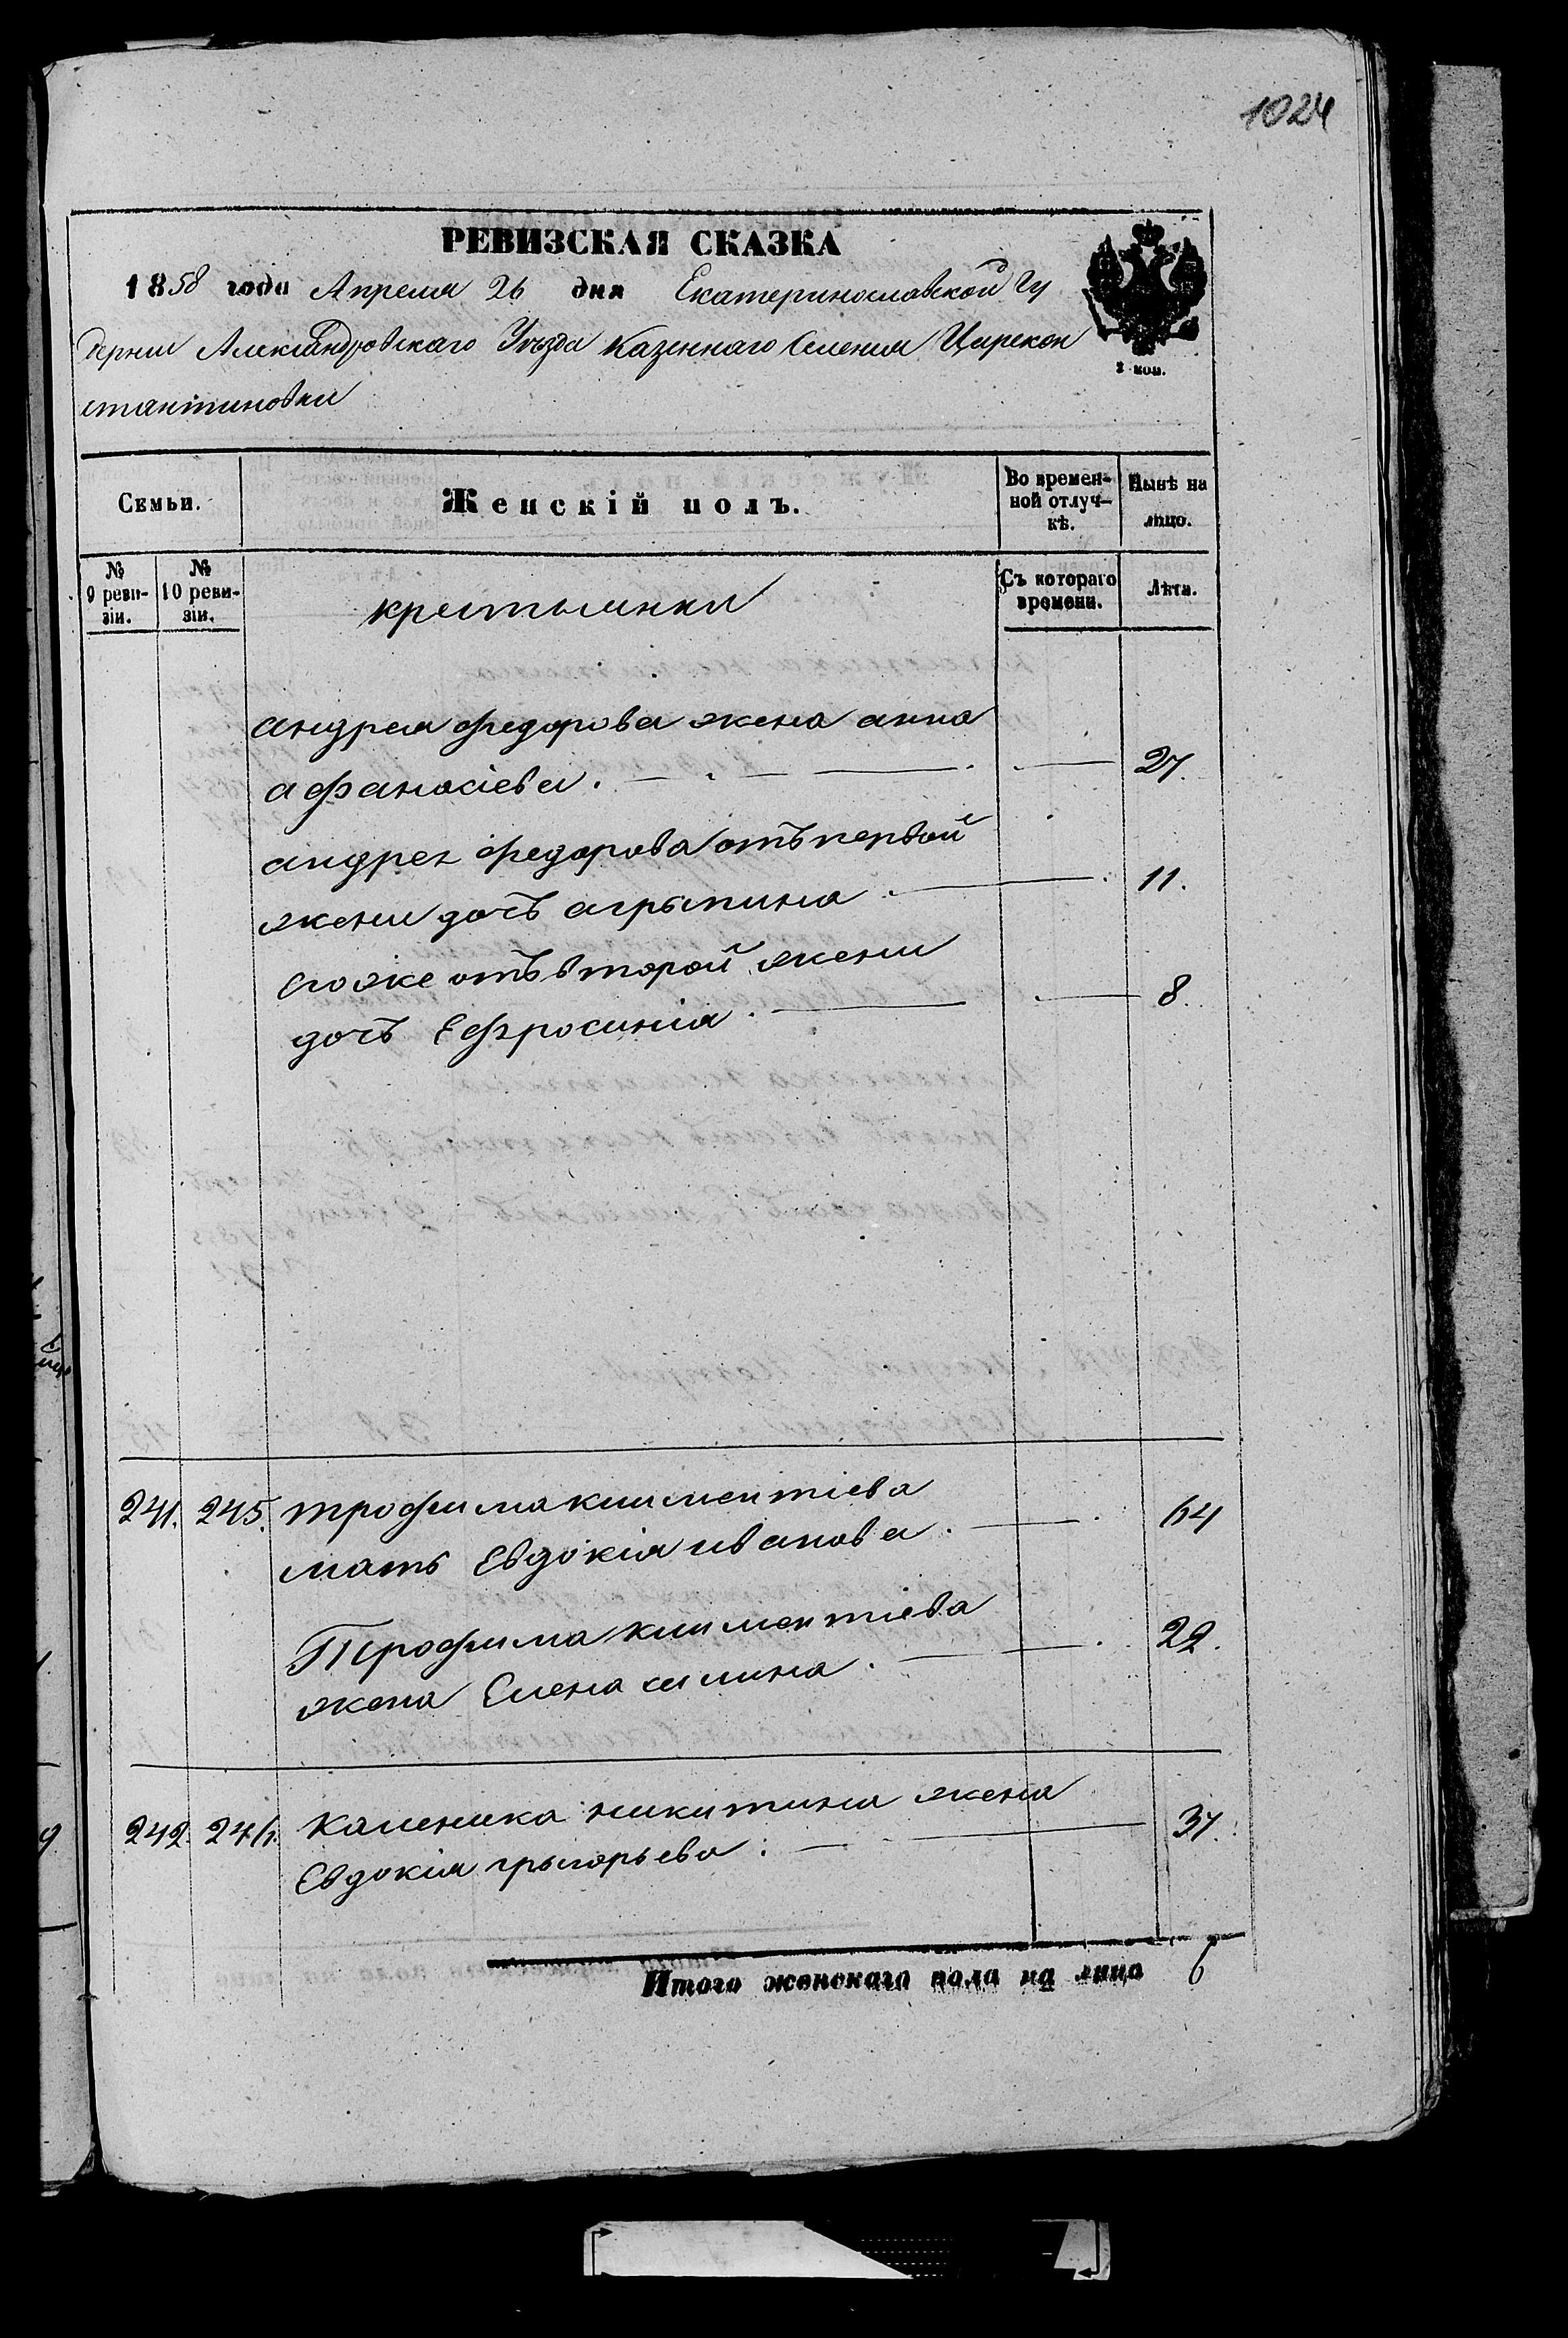 1024
РЕВИЗСКАЯ СКАЗКА
1858 года Апреля 26 дня Екатеринославской Гу
берни Александровскаго Уѣзда Казеннаго Селения Царекон
стантиновки
2 коп.
Семьи.
Женскій полъ.
Во времен-
ной отлуч-
кѣ.
Нынѣ на
лицо.
№
9 реви-
зіи.
№
10 реви-
зіи.
крестьянки
Съ котораго
времени.
Лѣта.
андрея федорова жена анна
афанасіева. 27.
андрея федорова отъ первой
жени дочъ агрыпина 11.
Егоже отъ второй жени
дочъ Ефросинія. 8.
241. 245. трофима климентіева
мать Евдокія иванова. 64
Трофима климентіева
жена Елена силина. 29.
242. 246. Каленика никитина жена
Евдокія грыгорьева: 37.
Итого женскаго пола на лицо 6